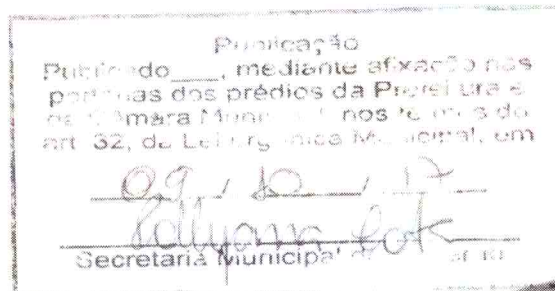 Publicação
Publicado____, mediante afixação nas
portarias dos prédios da Prefeitura e
da Câmara Municipal nos termos do
art. 32, da Lei Orgânica Municipal, em
09 / 10 / 17
Pollyana
Secretaria Municipal